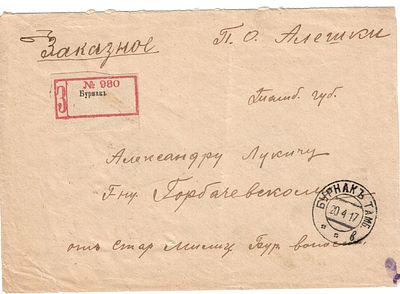 Заказное
П. О. Алешки
№ 980
Бурнакъ
З
Тамб. губ.
Александру Лукичу
Гну. Горбачевскому
БУРНАКЪ ТАМБ.
20 4 17
в
отъ Стар Милиц Бур